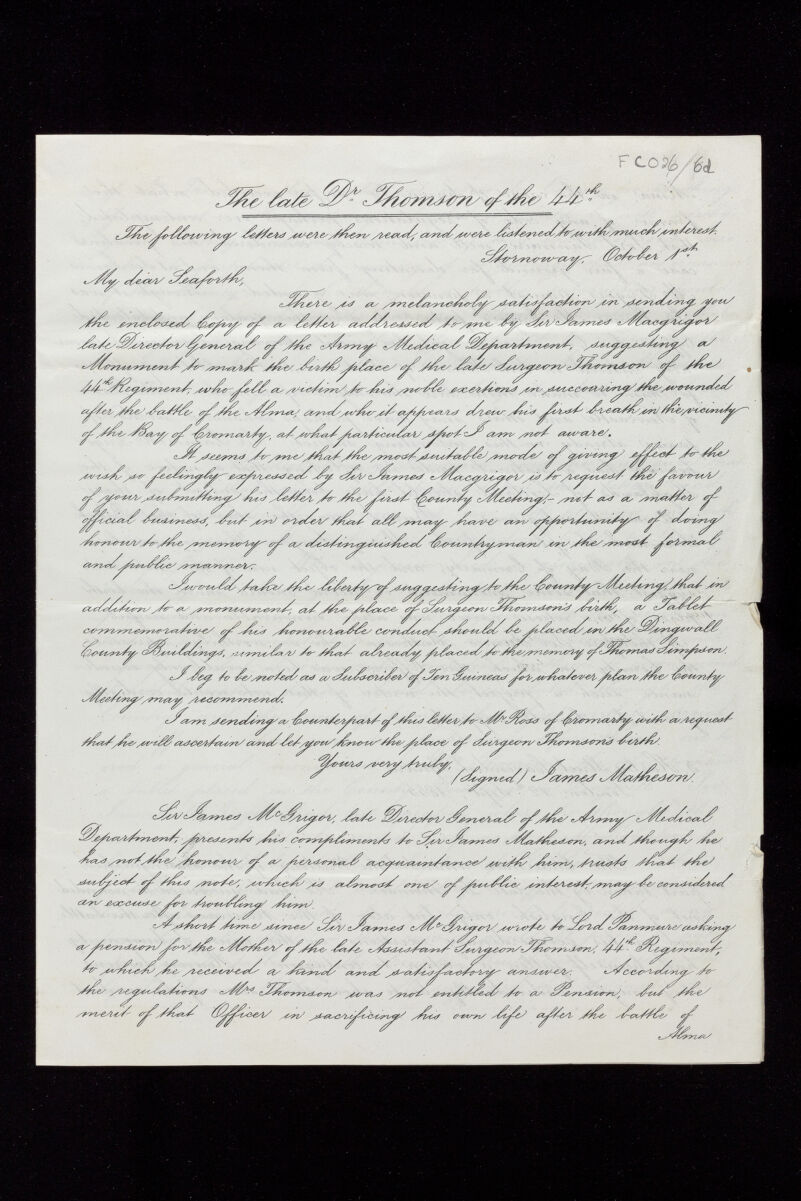 FC026/6d
The late Dr. Thomson of the 44th.
The following letters were then read, and were listened to with much interest.
Stornoway, October 1st.
My dear Seaforth,
There is a melancholy satisfaction in sending you
the enclosed Copy of a letter addressed to me by Sir James Macgrigor
late Director General of the Army Medical Department, suggesting a
Monument to mark the birth place of the late Surgeon Thomson of the
44th Regiment, who fell a victim to his noble exertions in succouring the wounded
after the battle of the Alma, and who it appears drew his first breath in the vicinity
of the Bay of Cromarty, at what particular spot I am not aware.
It seems to me that the most suitable mode of giving effect to the
wish so feelingly expressed by Sir James Macgrigor is to request the favour
of your submitting his letter to the first County Meeting,- not as a matter of
official business, but in order that all may have an opportunity of doing
honour to the memory of a distinguished Countryman in the most formal
and public manner.
I would take the liberty of suggesting to the County Meeting, that in
addition to a monument, at the place of Surgeon Thomson's birth, a Tablet
commemorative of his honourable conduct should be placed in the Dingwall
County Buildings, similar to that already placed to the memory of Thomas Simpson.
I beg to be noted as a Subscriber of Ten Guineas for whatever plan the County
Meeting may recommend.
I am sending a Counterpart of this letter to Mr Ross of Cromarty with a request
that he will ascertain and let you know the place of Surgeon Thomson's birth.
Yours very truly,
(Signed) James Matheson.
Sir James McGrigor, late Director General of the Army Medical
Department, presents his compliments to Sir James Matheson, and though he
has not the honour of a personal acquaintance with him, trusts that the
subject of this note, which is almost one of public interest, may be considered
an excuse for troubling him.
A short time since Sir James McGrigor wrote to Lord Panmure asking
a pension for the Mother of the late Assistant Surgeon Thomson, 44th Regiment,
to which he received a kind and satisfactory answer. According to
the regulations Mrs Thomson was not entitled to a Pension, but the
merit of that Officer in sacrificing his own life after the battle of
Alma